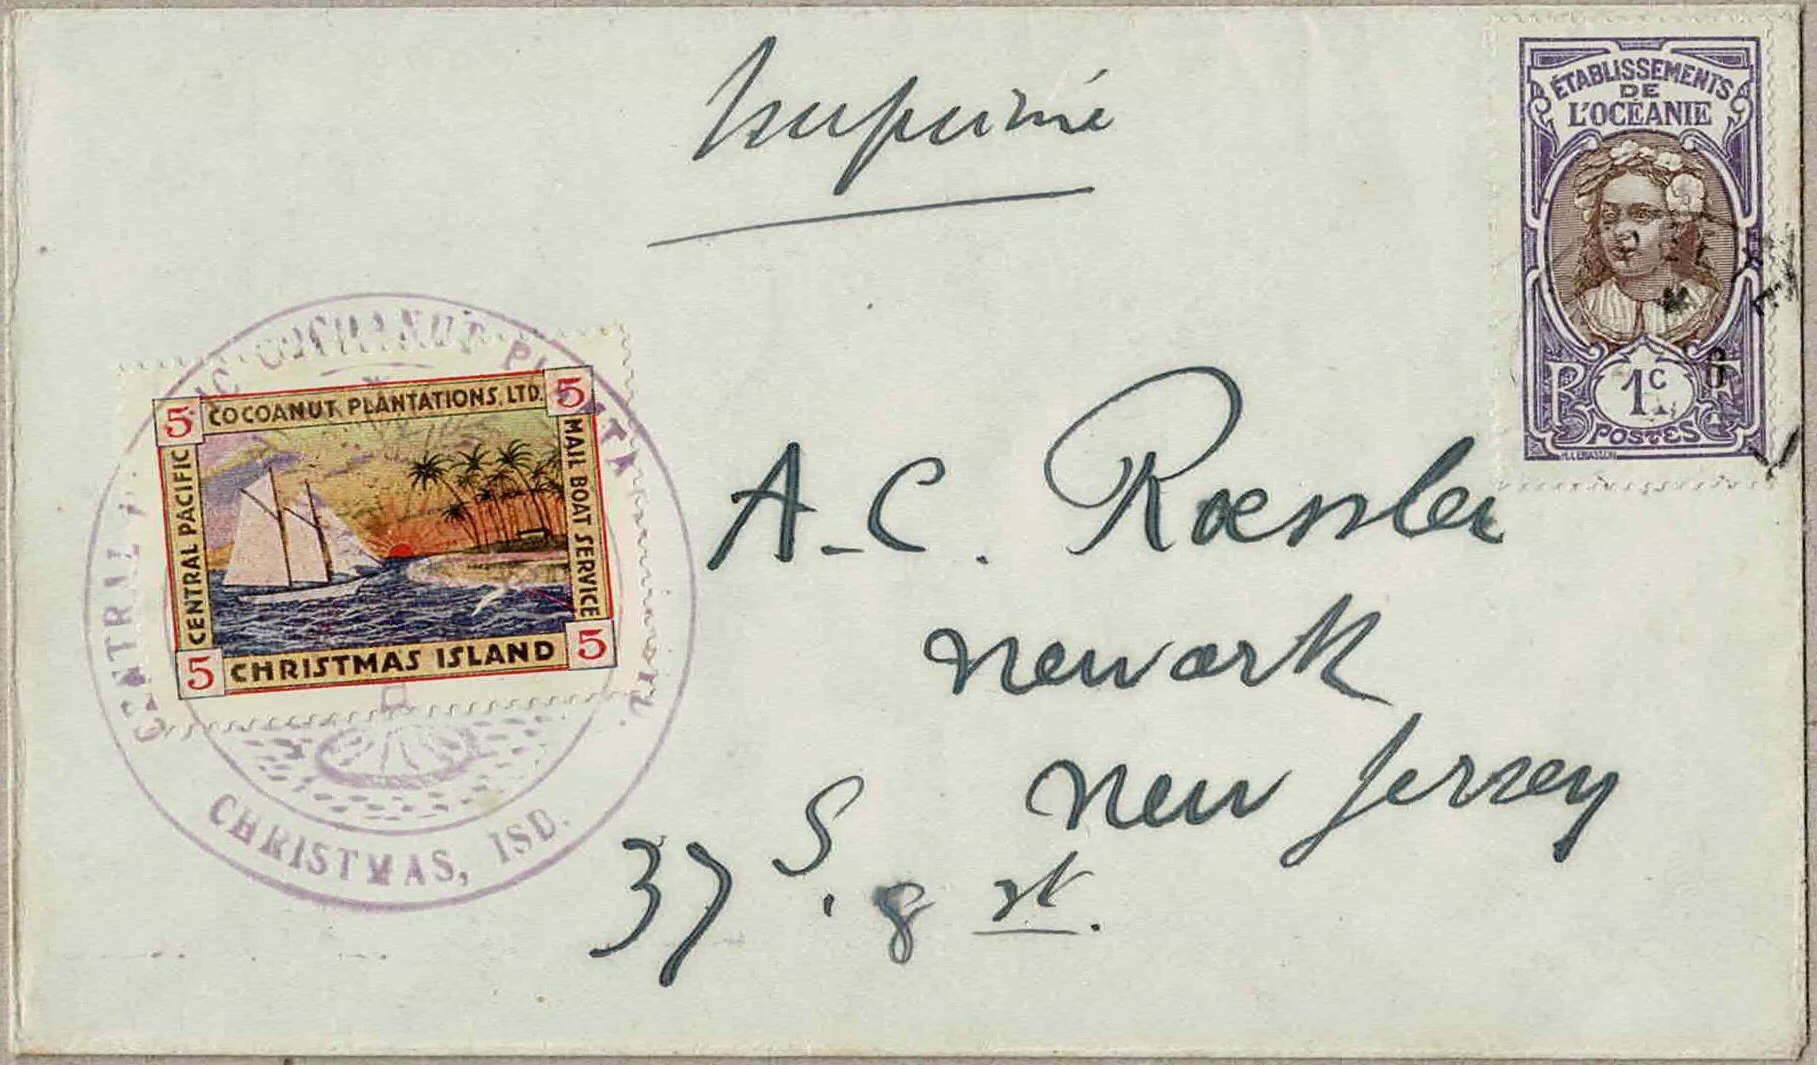 Imprimé
ÉTABLISSEMENTS
DE
L'OCÉANIE
1c
POSTES
CENTRAL PACIFIC COCOANUT PLANTATION
CHRISTMAS, ISD.
5 COCOANUT PLANTATIONS, LTD. 5
CENTRAL PACIFIC
MAIL BOAT SERVICE
5 CHRISTMAS ISLAND 5
A. C. Roessler
Newark
New Jersey
37 S. 8 st.